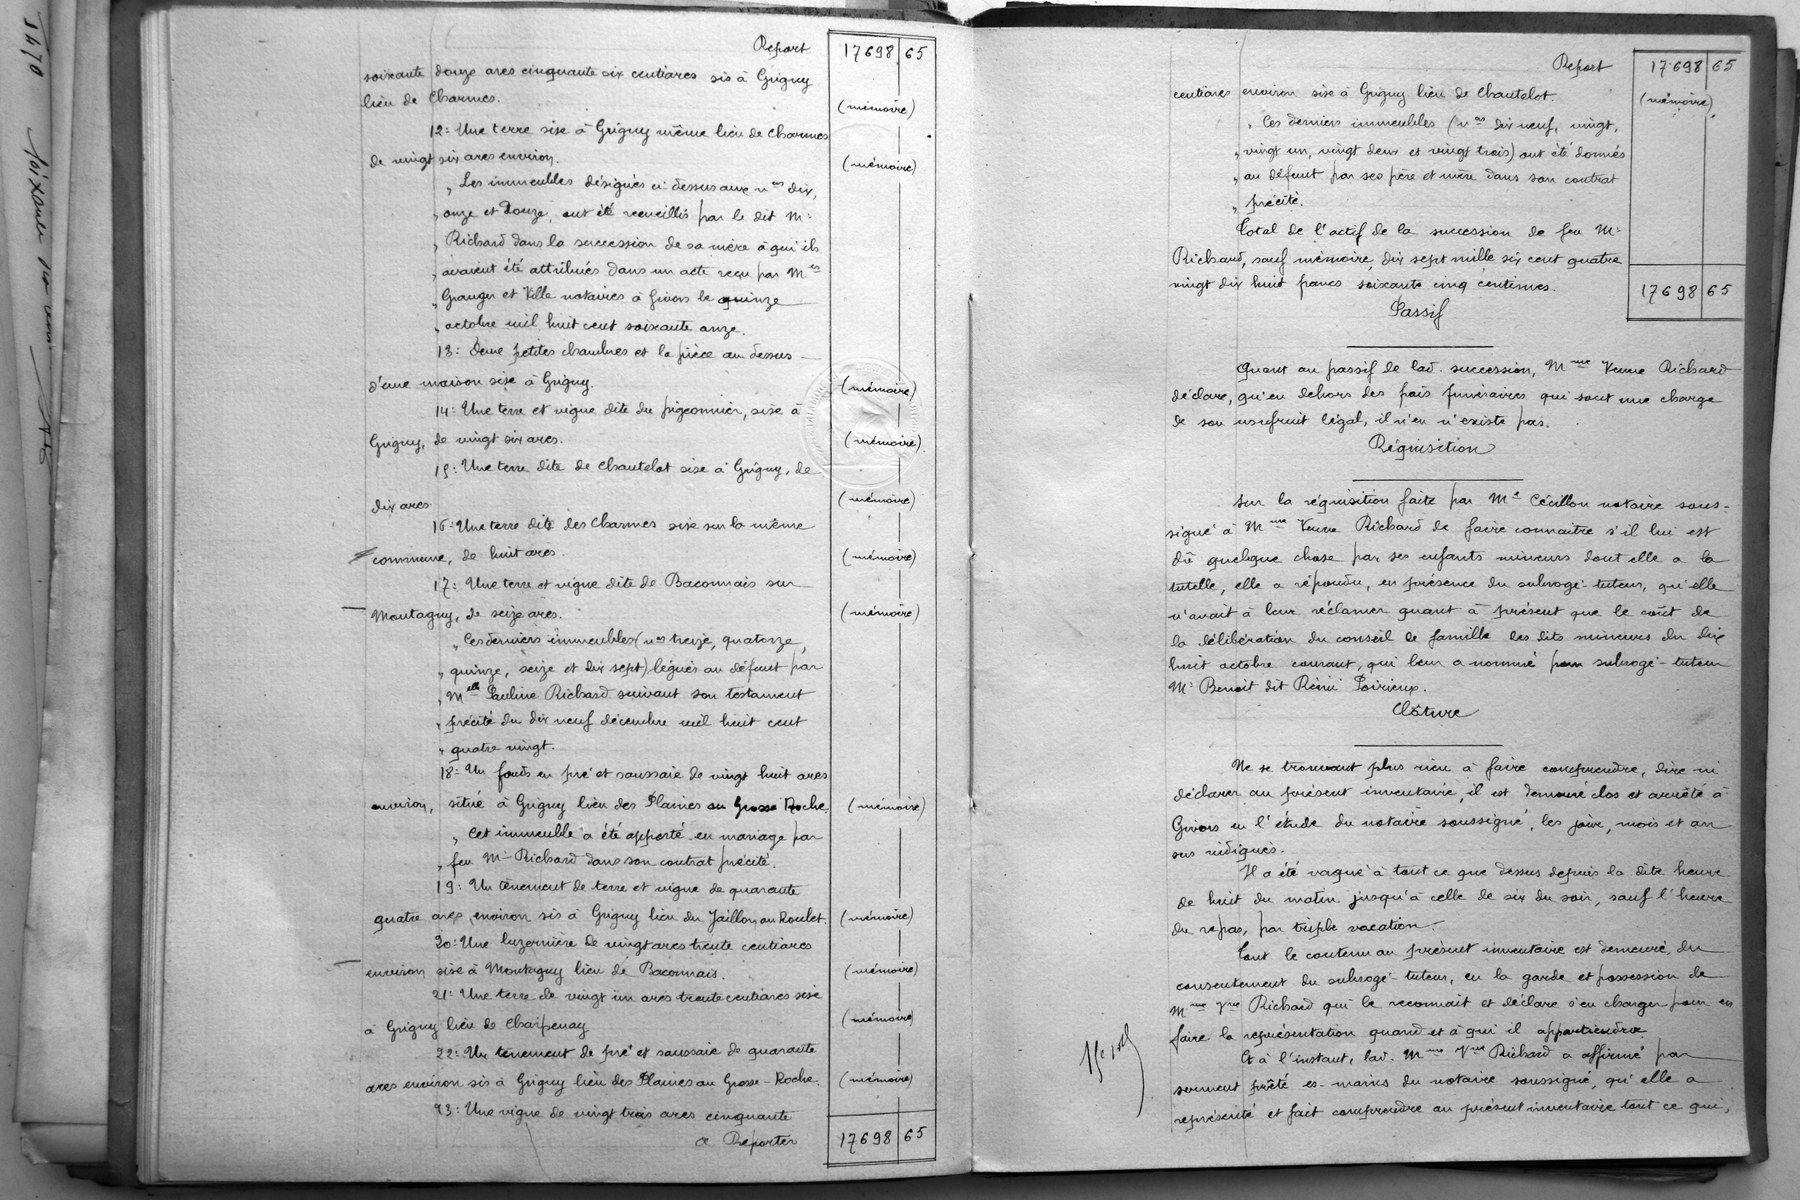 Report 17698 65
soixante douze ares cinquante six centiares sis à Grigny
lieu de Charmes. (mémoire)
12: Une terre sise à Grigny même lieu de Charmes
de vingt six ares environ. (mémoire)
„ Les immeubles désignés ci dessus aux nos dix,
„ onze et douze, ont été recueillis par le dit Mr
„ Richard dans la succession de sa mère à qui ils
„ avaient été attribués dans un acte reçu par Mes
„ Granger et Ville notaires à Givors le quinze
„ octobre mil huit cent soixante onze.
13: Deux petites chambres et la pièce au dessus
d'une maison sise à Grigny. (mémoire)
14: Une terre et vigne dite du pigeonnier, sise à
Grigny, de vingt six ares. (mémoire)
15: Une terre dite de Chantelot sise à Grigny, de
dix ares. (mémoire)
16: Une terre dite des Charmes sise sur la même
commune, de huit ares. (mémoire)
17: Une terre et vigne dite de Baconnais sur
Montagny, de seize ares. (mémoire)
„ Ces derniers immeubles (nos treize, quatorze,
„ quinze, seize et dix sept) légués au défunt par
„ Melle Pauline Richard suivant son testament
„ précité du dix neuf décembre mil huit cent
„ quatre vingt.
18: Un fonds en pré et saussaie de vingt huit ares
environ, situé à Grigny lieu des Plaines ou Grosse Roche. (mémoire)
„ Cet immeuble a été apporté en mariage par
„ feu Mr Richard dans son contrat précité.
19: Un tènement de terre et vigne de quarante
quatre ares environ sis à Grigny lieu du Jaillon ou Roulet. (mémoire)
20: Une luzernière de vingt ares trente centiares
environ sise à Montagny lieu de Baconnais. (mémoire)
21: Une terre de vingt un ares trente centiares sise
à Grigny lieu de Charpenay (mémoire)
22: Un tènement de pré et saussaie de quarante
ares environ sis à Grigny lieu des Plaines au Grosse-Roche. (mémoire)
23: Une vigne de vingt trois ares cinquante
à Reporter 17698 65
Report 17698 65
centiares environ sise à Grigny lieu de Chantelot. (mémoire)
„ Ces derniers immeubles (nos dix neuf, vingt,
„ vingt un, vingt deux et vingt trois) ont été donnés
„ au défunt par ses père et mère dans son contrat
„ précité.
Total de l'actif de la succession de feu Mr
Richard, sauf mémoire, dix sept mille six cent quatre
vingt dix huit francs soixante cinq centimes. 17698 65
Passif
Quant au passif de lad. succession, Mme Veuve Richard
déclare, qu'en dehors des frais funéraires qui sont une charge
de son usufruit légal, il n'en n'existe pas.
Réquisition
Sur la réquisition faite par Me Cécillon notaire sous-
signé à Mme Veuve Richard de faire connaitre s'il lui est
dû quelque chose par ses enfants mineurs dont elle a la
tutelle, elle a répondu, en présence du subrogé-tuteur, qu'elle
n'avait à leur réclamer quant à présent que le coût de
la délibération du conseil de famille des dits mineurs du dix
huit octobre courant, qui leur a nommé pour subrogé-tuteur
Mr Benoit dit Rémi Poirieux.
Clôture
Ne se trouvant plus rien à faire comprendre, dire ni
déclarer au présent inventaire, il est demeuré clos et arrêté à
Givors en l'étude du notaire soussigné, les jour, mois et an
sus indiqués.
Il a été vaqué à tout ce que dessus depuis la dite heure
de huit du matin jusqu'à celle de six du soir, sauf l'heure
du repas, par triple vacation.
Tout le contenu au présent inventaire est demeuré, du
consentement du subrogé-tuteur, en la garde et possession de
Mme Vve Richard qui le reconnait et déclare s'en charger pour en
faire la représentation quand et à qui il appartiendra.
Et à l'instant, lad. Mme Vve Richard a affirmé par
serment prêté es-mains du notaire soussigné, qu'elle a
représenté et fait comprendre au présent inventaire tout ce qui,